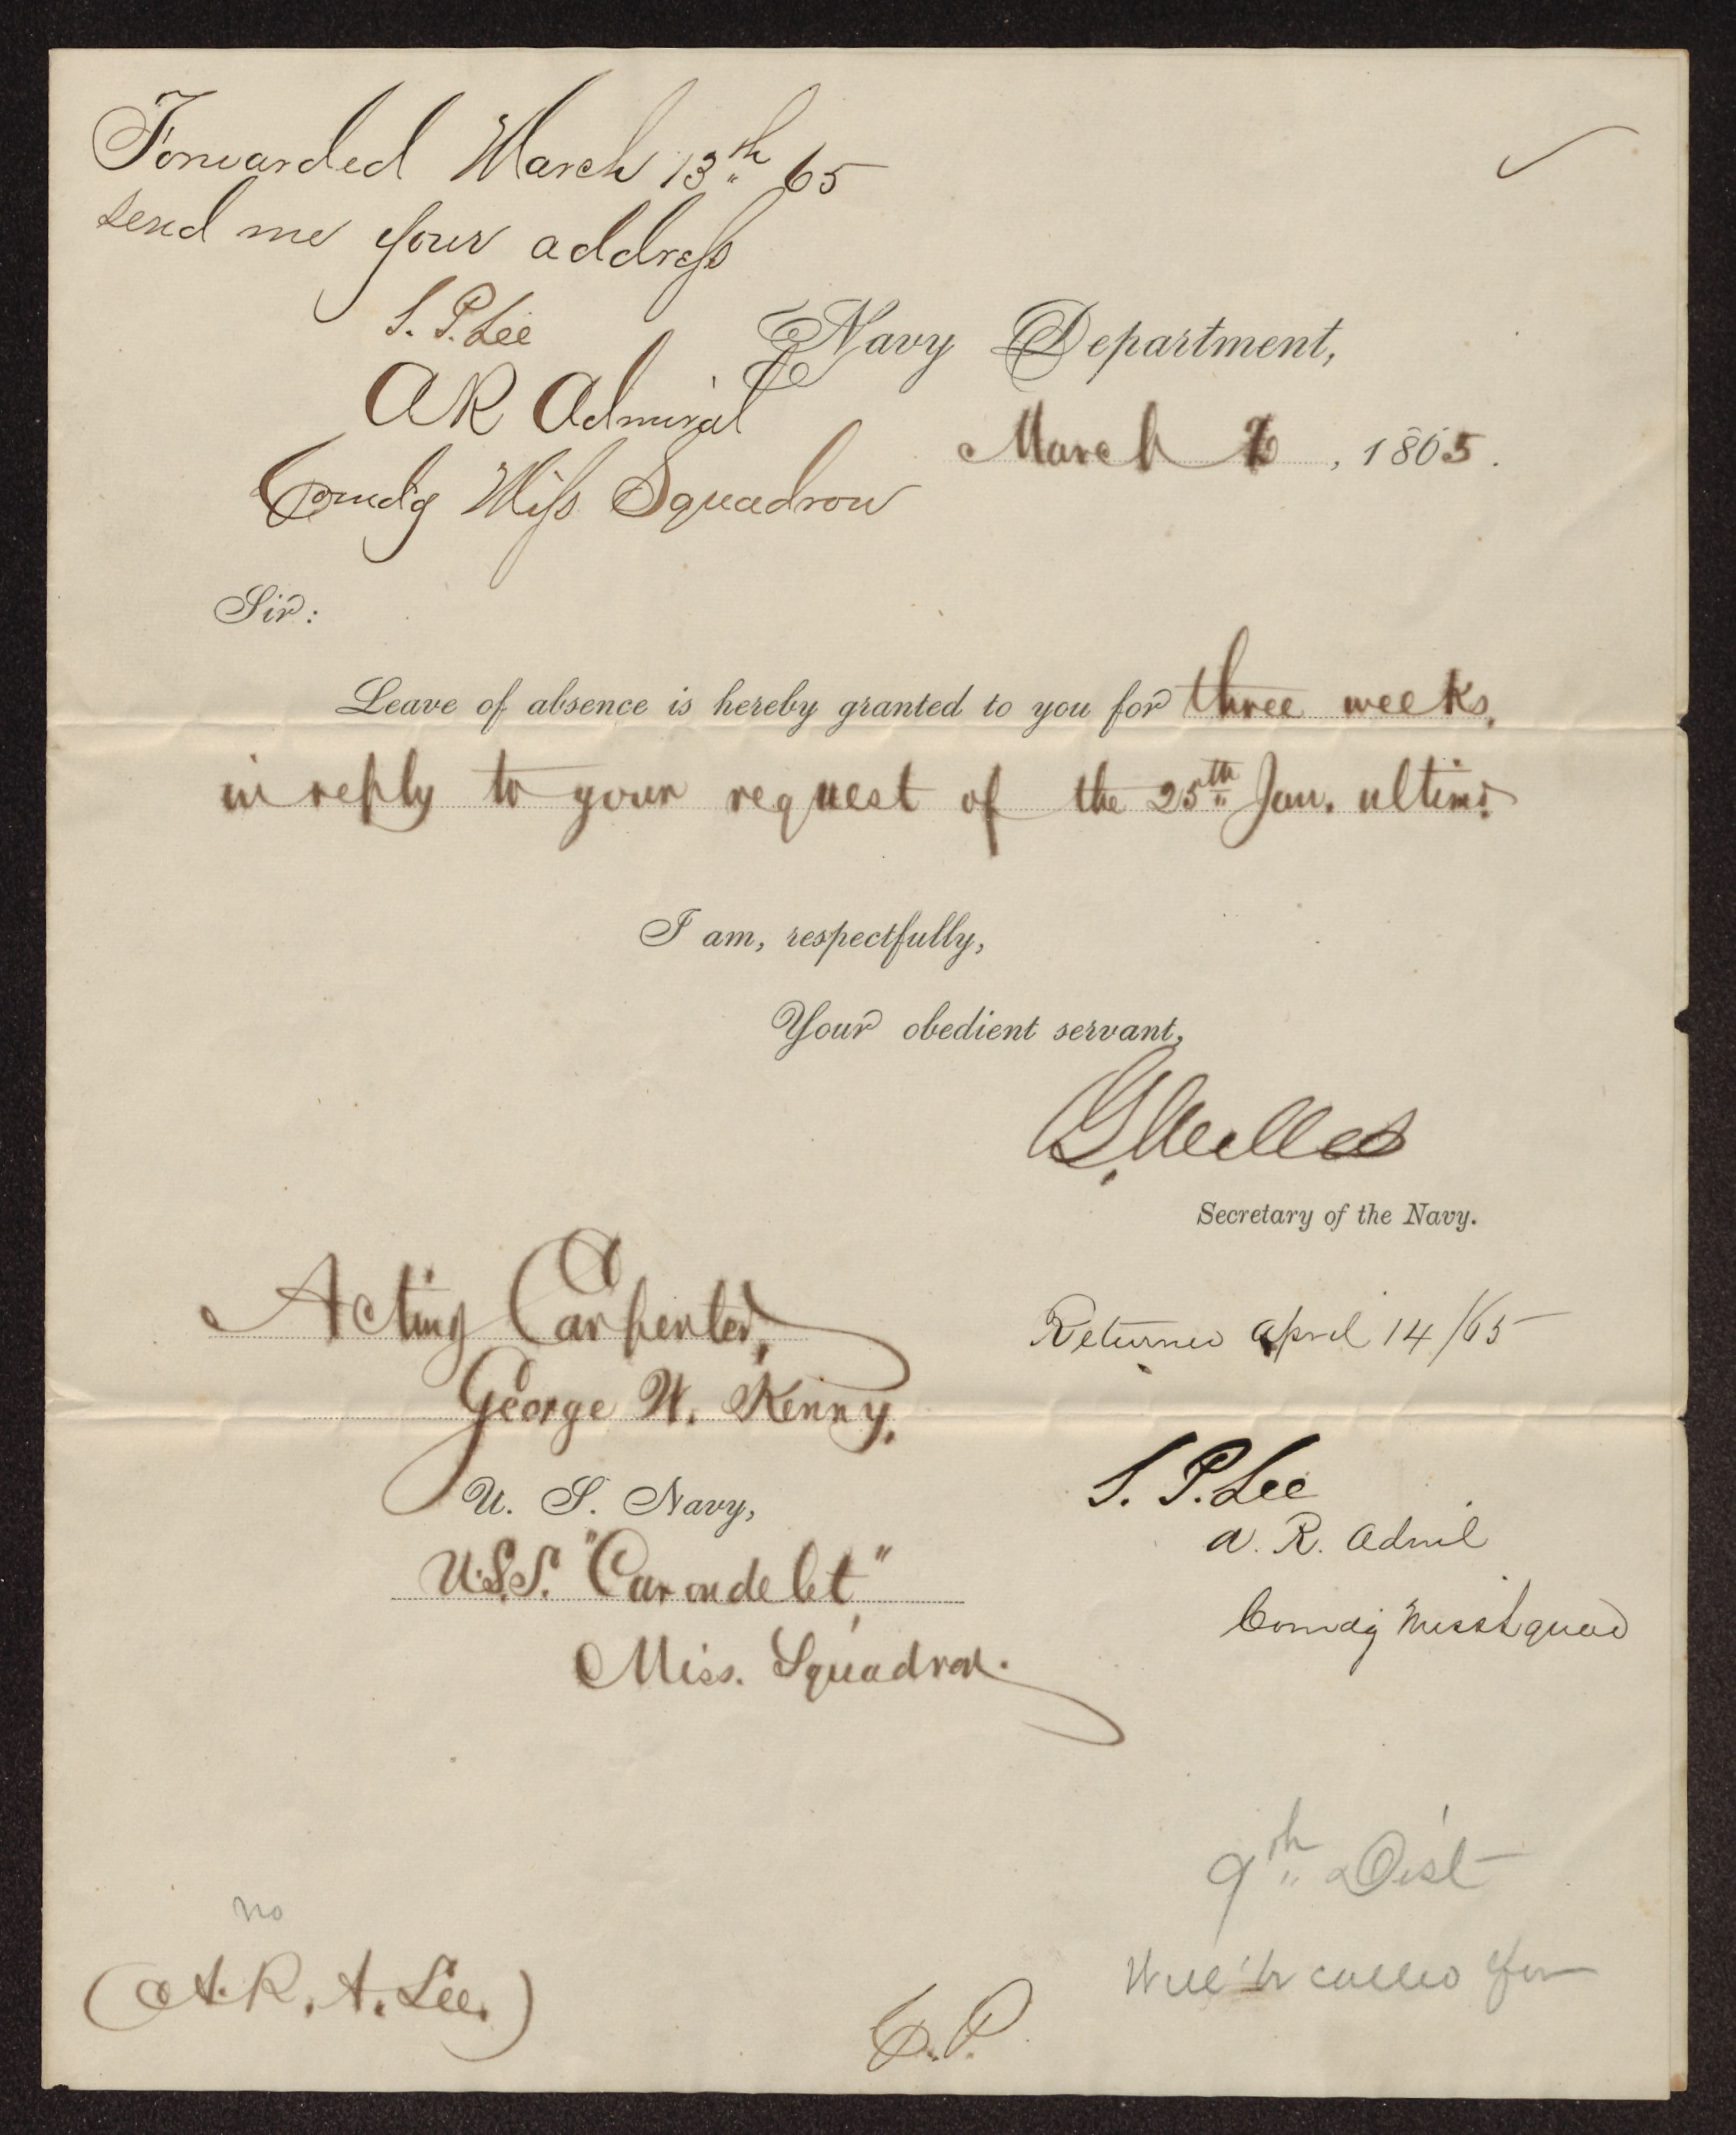 Forwarded March 13th 65
send me your address
S. P. Lee
A R Admiral
Comdg Miss Squadron
Navy Department,
March , 1865.
Sir:
Leave of absence is hereby granted to you for three weeks,
in reply to your request of the 25th Jan. ultimo.
I am, respectfully,
Your obedient servant,
G Welles
Secretary of the Navy.
Acting Carpenter,
George W. Kenny,
U. S. Navy,
U.S.S. "Carondelet"
Miss. Squadron.
Returned April 14/65
S. P. Lee
A. R. Adml
Comdg Miss Squad
9th Dist
Will be called for
no
(A. R. A. Lee.)
C. P.